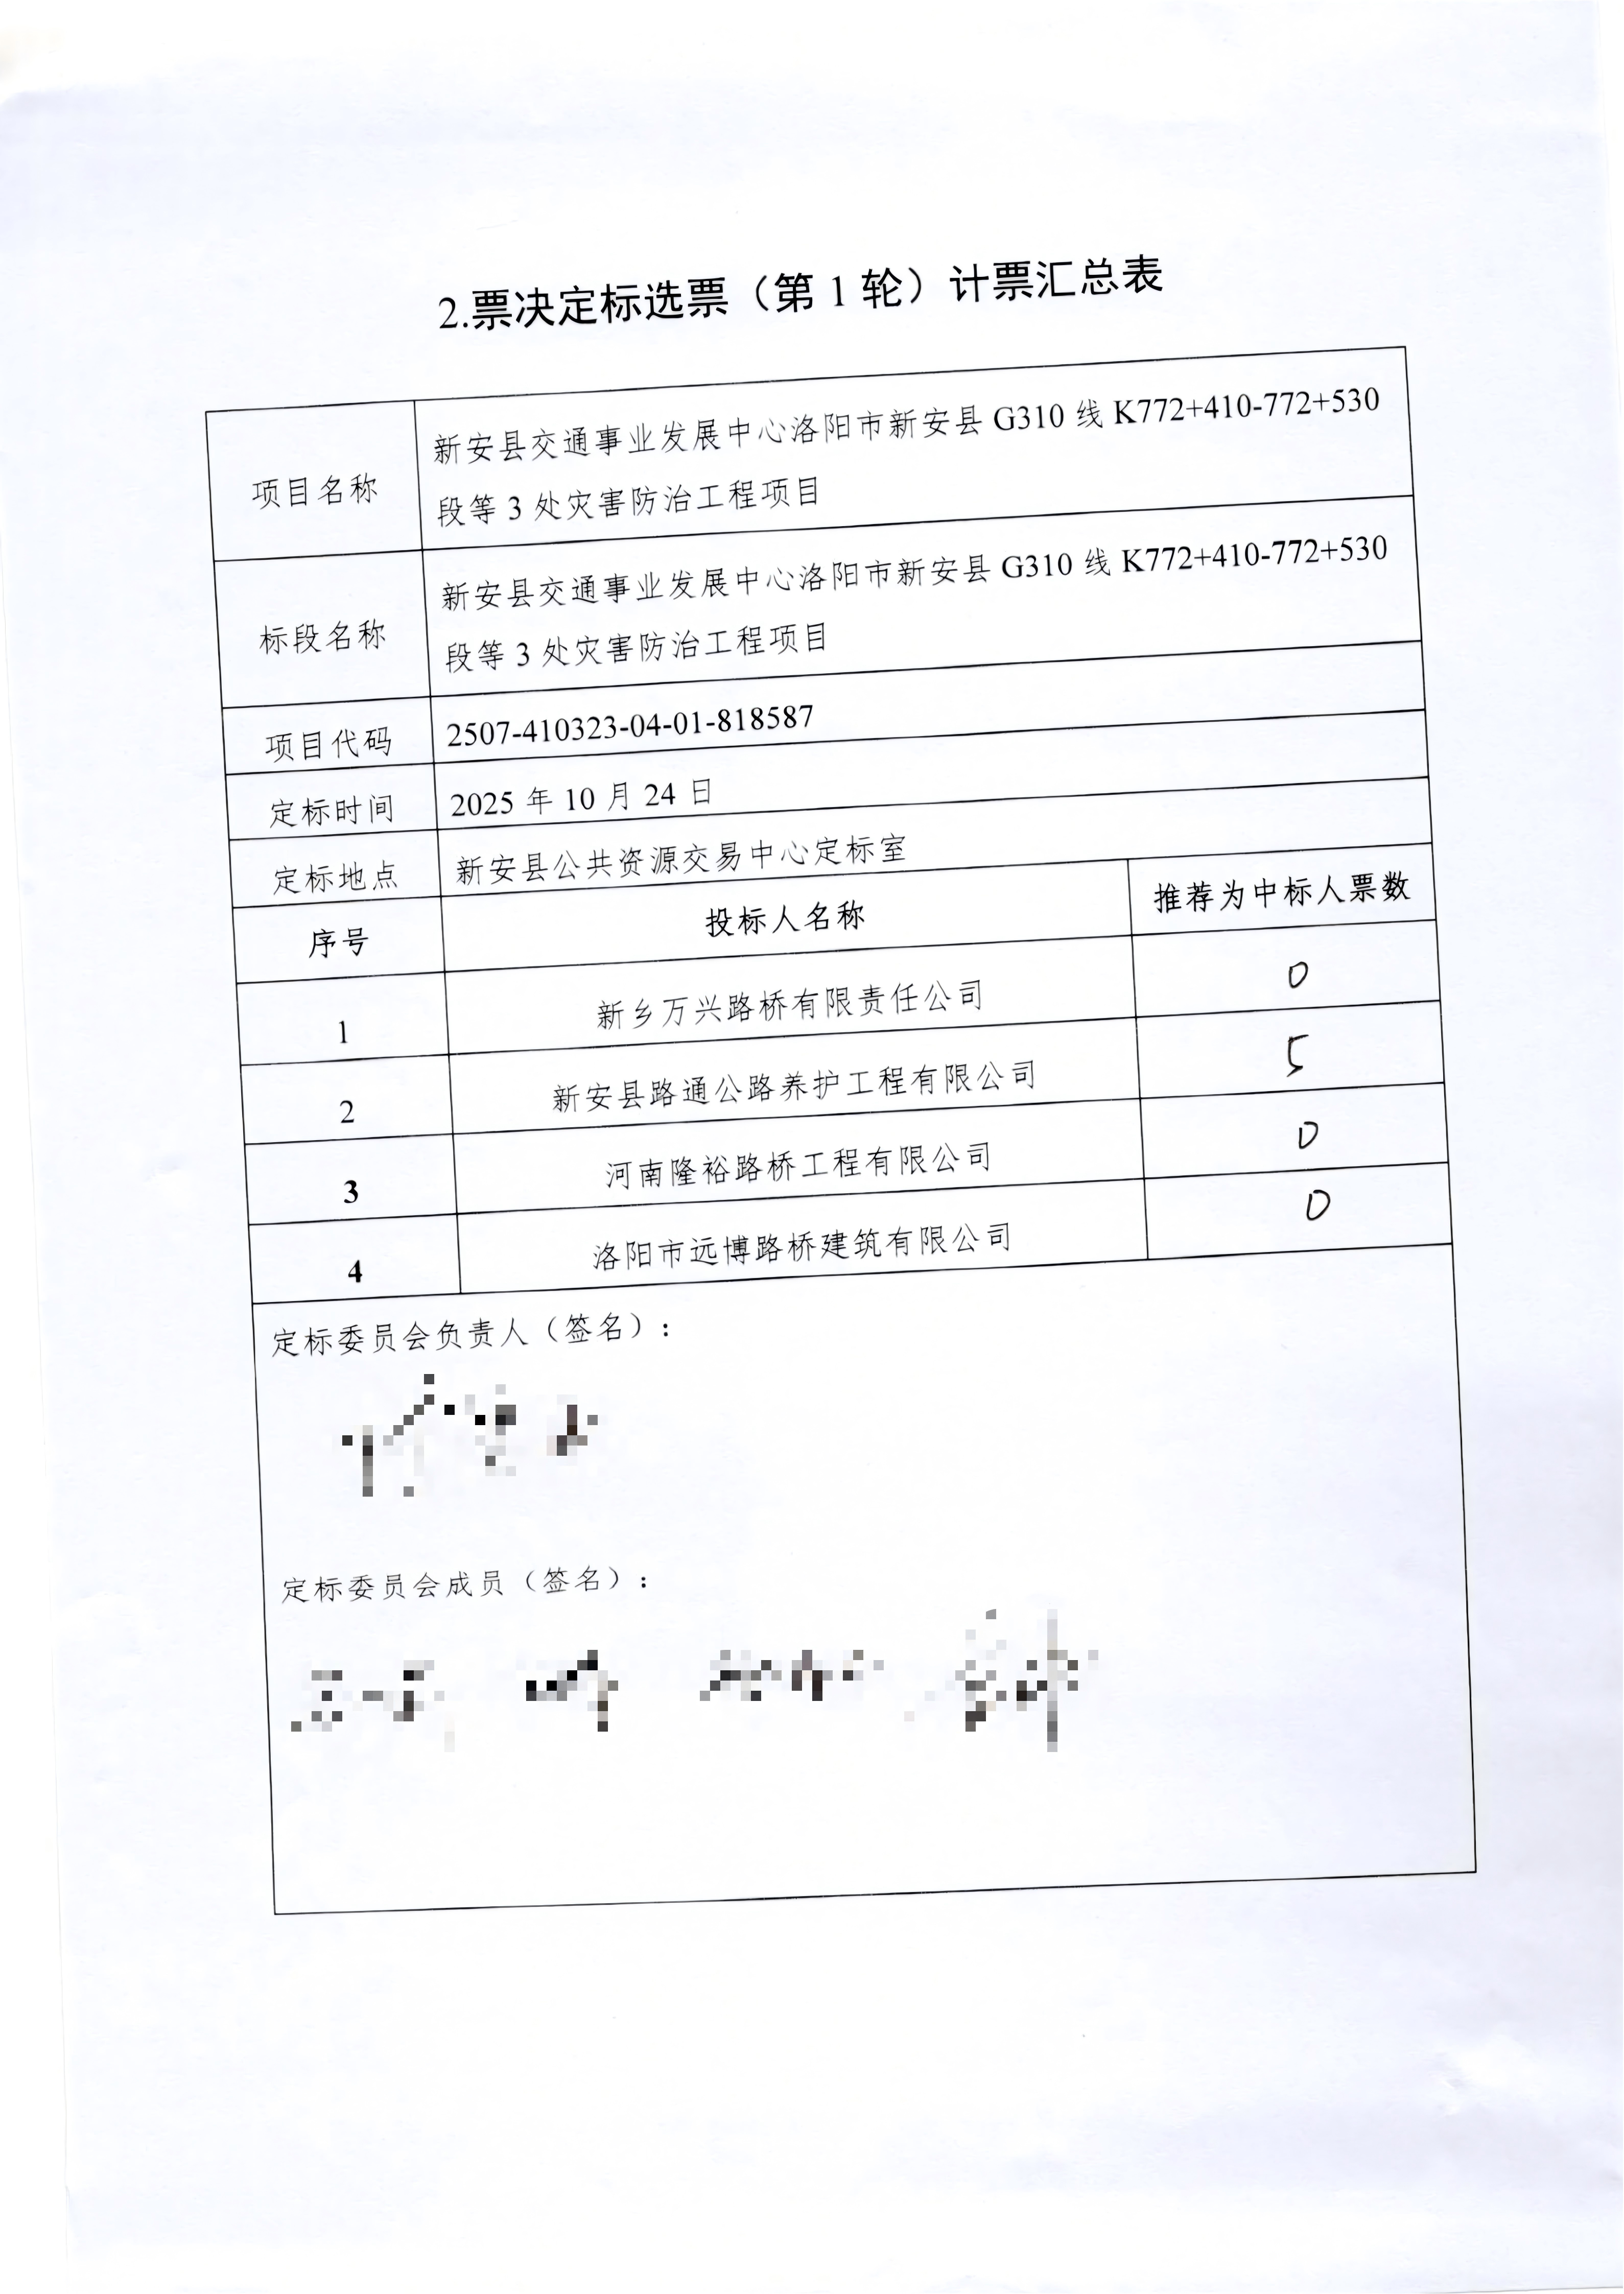 2.票决定标选票（第 1 轮）计票汇总表
项目名称
新安县交通事业发展中心洛阳市新安县 G310 线 K772+410-772+530
段等 3 处灾害防治工程项目
标段名称
新安县交通事业发展中心洛阳市新安县 G310 线 K772+410-772+530
段等 3 处灾害防治工程项目
项目代码 2507-410323-04-01-818587
定标时间 2025 年 10 月 24 日
定标地点 新安县公共资源交易中心定标室
序号 投标人名称 推荐为中标人票数
1 新乡万兴路桥有限责任公司 0
2 新安县路通公路养护工程有限公司 5
3 河南隆裕路桥工程有限公司 0
4 洛阳市远博路桥建筑有限公司 0
定标委员会负责人（签名）：
定标委员会成员（签名）：